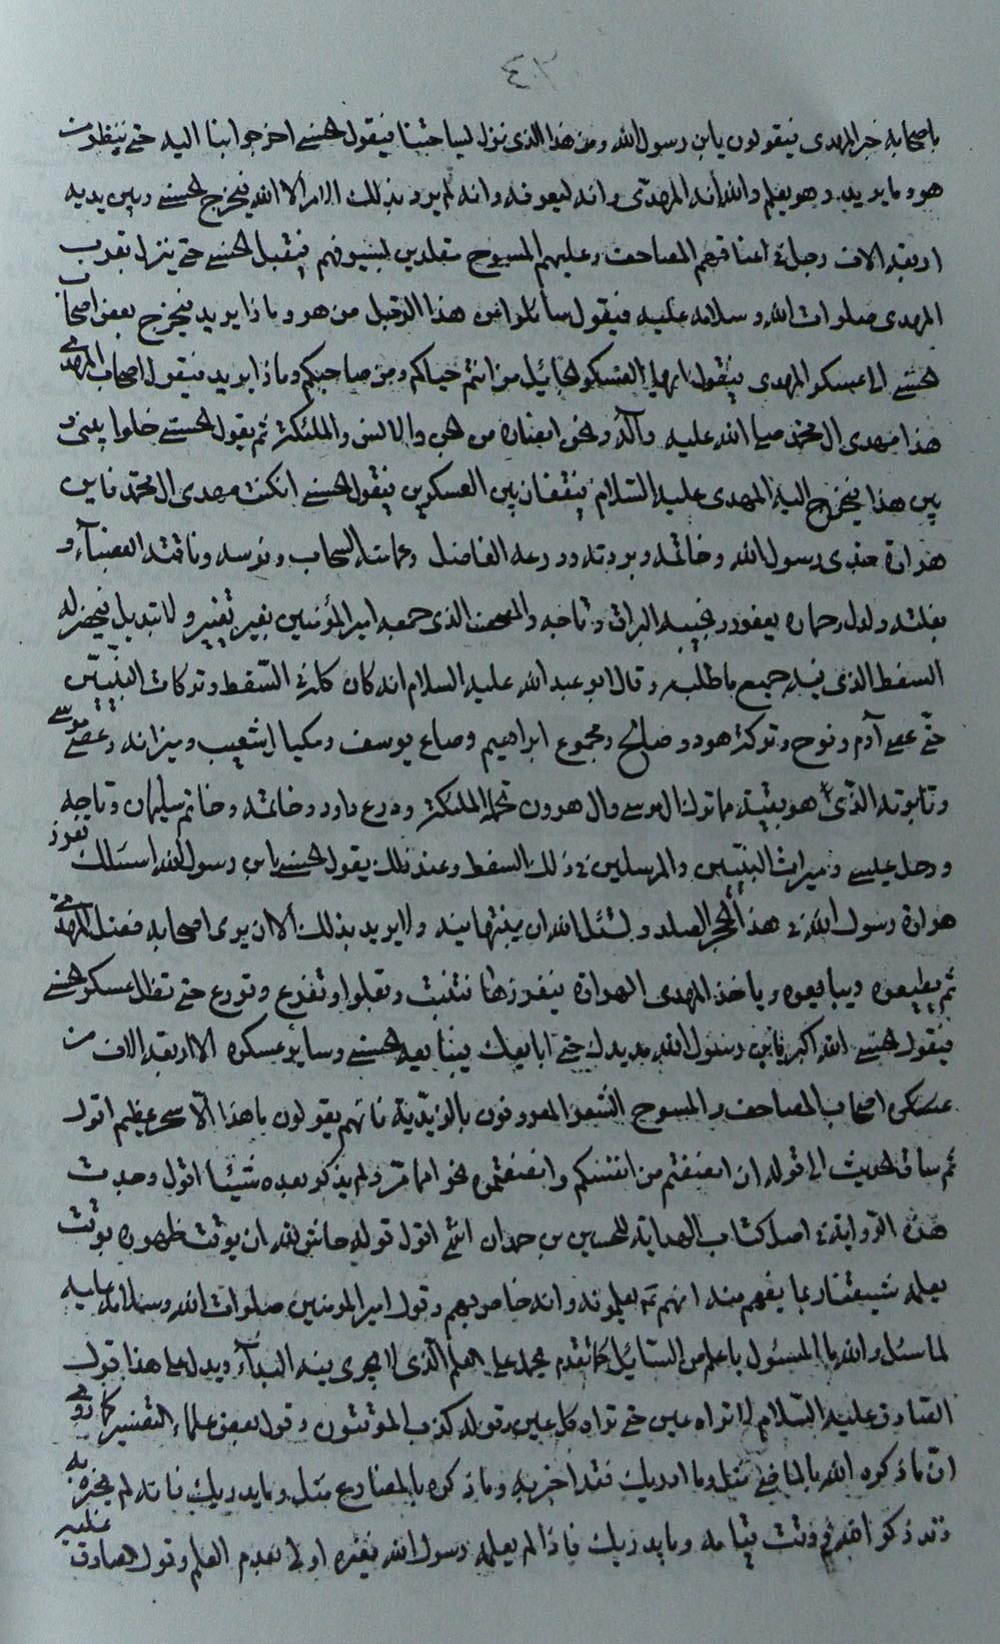 ٤٠٣
باصحابه خبر المهدى فيقولون يابن رسول الله ومن هذا الذى نزل بساحتنا فيقول الحسنى اخرجوا بنا اليه حتى ننظر من
هو وما يريد وهو يعلم والله انه المهدى وانه ليعرفه وانه لم يرد بذلك الامر الا الله فيخرج الحسنى وبين يديه
اربعة الاف رجل فى اعناقهم المصاحف وعليهم المسوح مقلدين بسيوفهم فيقبل الحسنى حتى ينزل بقرب
المهدى صلوات الله وسلامه عليه فيقول سائلوا عن هذا الرجل من هو وماذا يريد فيخرج بعض اصحاب
الحسنى الى عسكر المهدى فيقول ايها العسكر الجائل من انتم حياكم ومن صاحبكم وماذا يريد فيقول اصحاب المهدى
هذا مهدى ال محمد صلى الله عليه وآله ونحن انصاره من الجن والانس والملئكة ثم يقول الحسنى خلوا بينى و
بين هذا فيخرج اليه المهدى عليه السلام فيقفان بين العسكرين فيقول الحسنى ان كنت مهدى ال محمد فاين
هراوة جدى رسول الله وخاتمه وبردته ودرعه الفاضل وعمامته السحاب وفرسه وناقته العضباء و
بغلته دلدل وحماره يعفور ونجيبه البراق وتاجه والمصحف الذى جمعه امير المؤمنين بغير تغيير ولا تبديل فيحضر له
السفط الذى فيه جميع ما طلبه وقال ابو عبد الله عليه السلام انه كان كله فى السفط وتركات النبيين
حتى عصى آدم ونوح وتركة هود وصالح ومجموع ابراهيم وصاع يوسف ومكيال شعيب وميزانه وعصى موسى
وتابوته الذى فيه بقية ما ترك ال موسى وال هرون تحمله الملئكة ودرع داود وخاتمه وخاتم سليمان وتاجه
ورحل عيسى وميراث النبيين والمرسلين فى ذلك السفط وعند ذلك يقول الحسنى يابن رسول الله اسئلك تغرز
هراوة رسول الله فى هذا الحجر الصلد وتسئل الله ان ينبتها فيه ولا يريد بذلك الا ان يرى اصحابه فضل المهدى
ثم يطيعوه ويبايعوه وياخذ المهدى الهراوة فيغرزها فتنبت وتعلو وتفرع وتورق حتى تظل عسكر الحسنى
فيقول الحسنى الله اكبر يابن رسول الله مد يدك حتى ابايعك فيبايعه الحسنى وساير عسكره الا اربعة الاف من
عسكره اصحاب المصاحف والمسوح الشعر المعروفون بالزيدية فانهم يقولون ما هذا الا سحر عظيم اقول
ثم ساق الحديث الى قوله ان انصفتم من انفسكم وانصفتموه نحوا مما مر ولم يذكر بعده شيئا اقول وجدت
هذه الرواية فى اصل كتاب الهداية للحسين بن حمدان انتهى اقول قوله حاش لله ان يوقت ظهوره بوقت
يعلمه شيعتنا ربما يفهم منه انهم هم يعلمونه وانه خاص بهم وقول امير المؤمنين صلوات الله وسلامه عليه
لما سئل والله ما المسئول باعلم من السائل كما تقدم محمد على العلم الذى لا يجرى فيه البداء ويدل على هذا قول
الصادق عليه السلام لا تراه عين حتى تراه كل عين وقوله كذب الموقتون وقول بعض علماء التفسير كما روى
ان ما ذكره الله بالماضى مثل وما ادريك فقد اخبر به وما ذكره بالمضارع مثل وما يدريك فانه لم يخبره به
وقد ذكر الله فى وقت قيامه وما يدريك فاذا لم يعلمه رسول الله فغيره اولى بعدم العلم وقول الصادق عليه